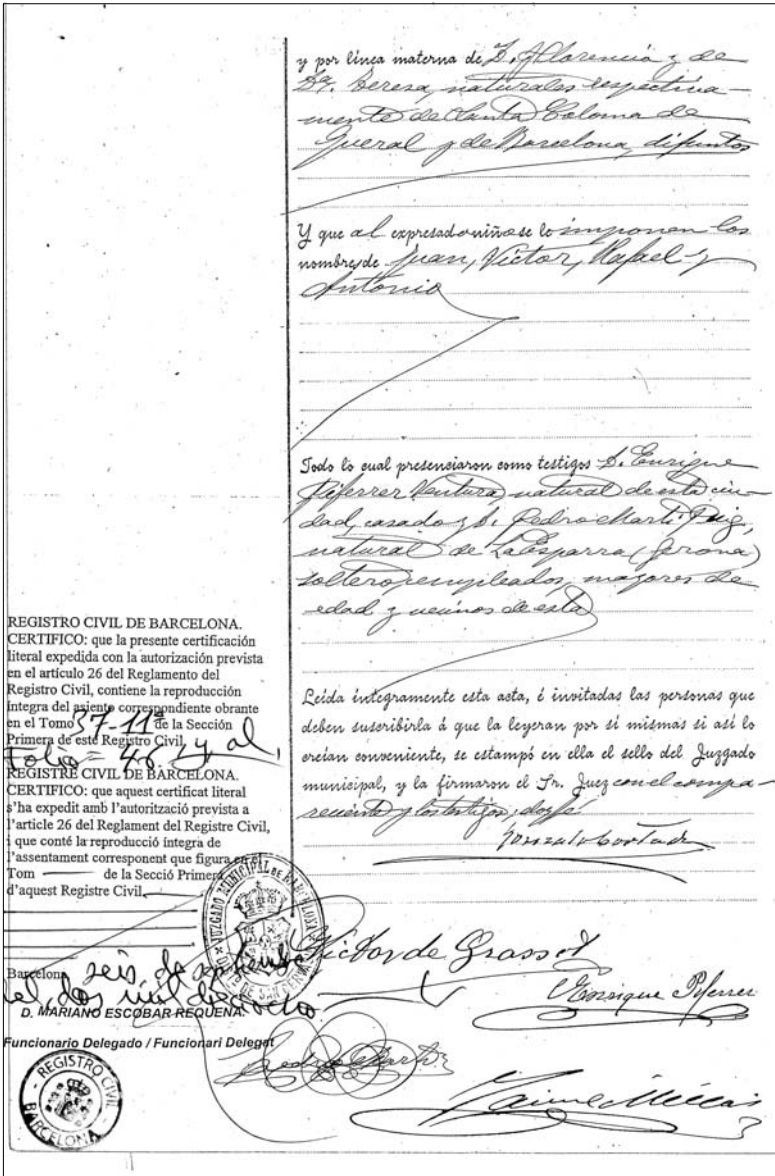 y por línea materna de D. Florencio y de
Dª. Teresa, naturales respectiva-
mente de Santa Coloma de
Queral y de Barcelona, difuntos
Y que al expresado niño se le imponen los
nombres de Juan, Victor, Rafael y
Antonio
Todo lo cual presenciaron como testigos D. Enrique
Piferrer Ventura, natural de esta ciu-
dad, casado y D. Pedro Martí Puig,
natural de La Esparra (Gerona)
soltero, empleados, mayores de
edad y vecinos de esta
Leída íntegramente esta acta, é invitadas las personas que
deben suscribirla á que la leyeran por sí mismas si así lo
creían conveniente, se estampó en ella el sello del Juzgado
municipal, y la firmaron el Sr. Juez con el compa-
reciente y los testigos, doy fé
Victor de Grassot
Enrique Piferrer
Pedro Martí
Jaime
REGISTRO CIVIL DE BARCELONA.
CERTIFICO: que la presente certificación
literal expedida con la autorización prevista
en el artículo 26 del Reglamento del
Registro Civil, contiene la reproducción
íntegra del asiento correspondiente obrante
en el Tomo 37-11ª de la Sección
Primera de este Registro Civil,
Folio = 46. y al
REGISTRE CIVIL DE BARCELONA.
CERTIFICO: que aquest certificat literal
s'ha expedit amb l'autorització prevista a
l'article 26 del Reglament del Registre Civil,
i que conté la reproducció íntegra de
l'assentament corresponent que figura en el
Tom de la Secció Primera
d'aquest Registre Civil.
JUZGADO MUNICIPAL DE BARCELONA
Barcelona seis de
del dos mil dieciocho
D. MARIANO ESCOBAR REQUENA.
Funcionario Delegado / Funcionari Delegat
REGISTRO CIVIL - BARCELONA